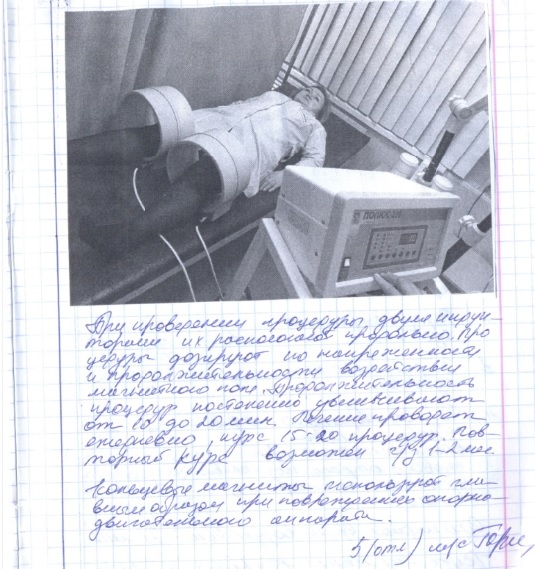 ПОЛЮС-2М
При проведении процедуры двумя индук-
торами их располагают продольно. Про
цедуры дозируют по напряженности
и продолжительности воздействия
магнитного поля. Продолжительность
процедур постепенно увеличивают
от 10 до 20 мин. Лечение проводят
ежедневно курс 15-20 процедур. Пов-
торный курс возможен ч/з 1-2 мес.
Кольцевые магниты используют гла-
вным образом при повреждениях опорно
двигательного аппарата.
5 (отл) м/с